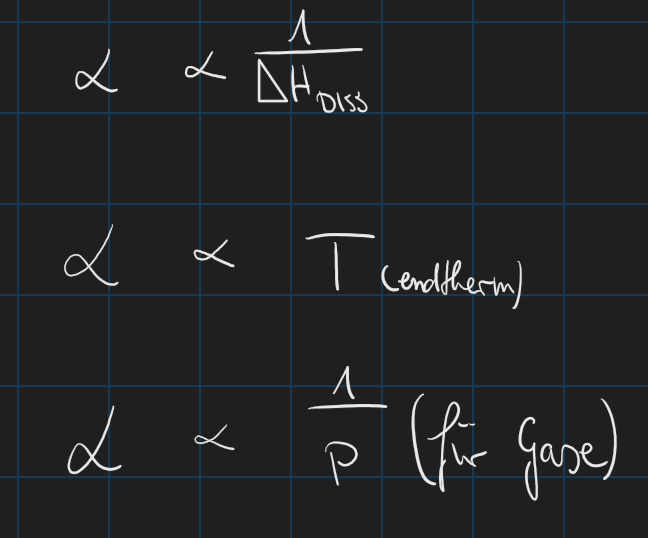 α ∝ 1/ΔH_DISS
α ∝ T (endtherm)
α ∝ 1/p (für Gase)